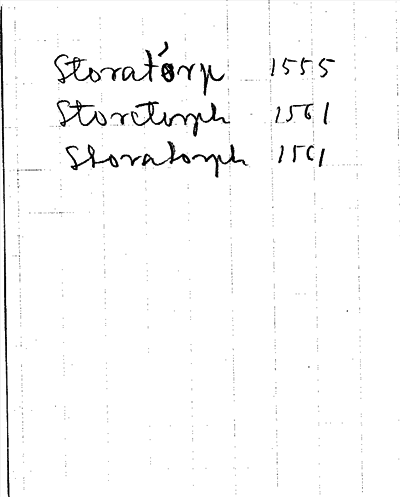 Storatórp 1555
Storctorph 1561
Storatorph 1561